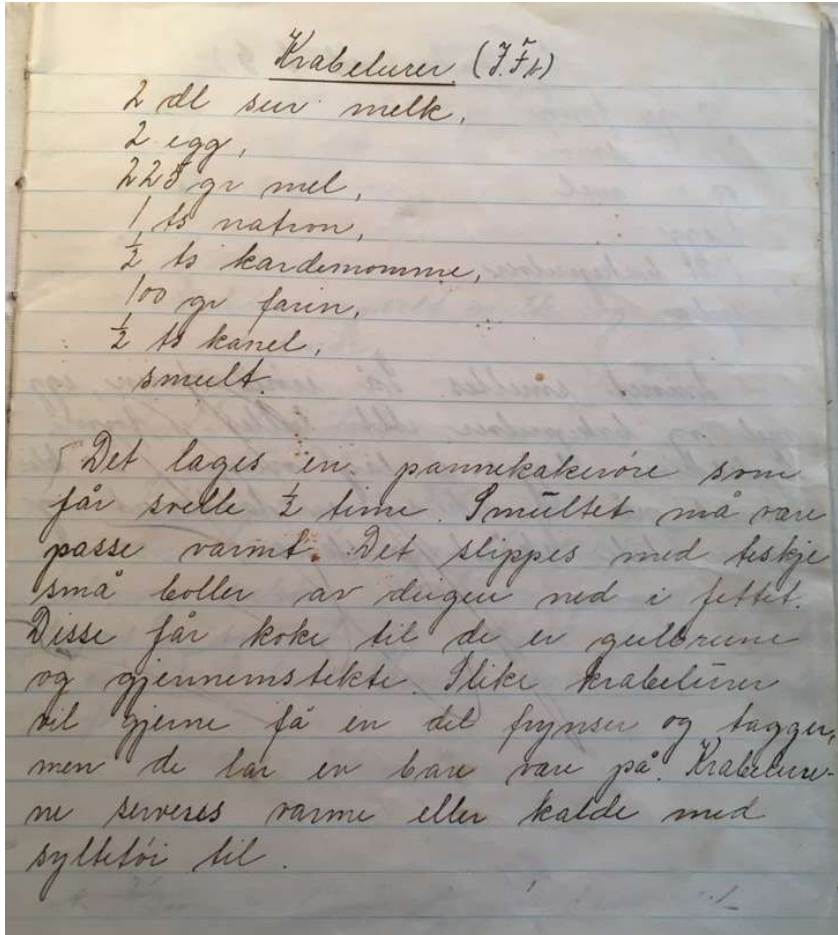 Krabelurer
2 dl sur melk,
2 egg,
225 gr mel,
1 ts natron,
½ ts kardemomme,
100 gr farin,
½ ts kanel,
smult.
Det lages en pannekakerøre som
får svelle ½ time. Smultet må være
passe varmt. Det slippes med teskje
små boller av deigen ned i fettet.
Disse får koke til de er gulbrune
og gjennemstekte. Slike krabelurer
vil gjerne få en del frynser og tagger,
men de lar en bare være på. Krabelure-
ne serveres varme eller kalde med
syltetøi til.